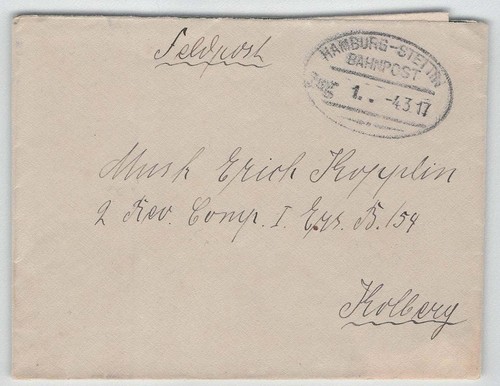 Feldpost
HAMBURG-STETTIN
BAHNPOST
1. 4.3.17
Musk Erich Kopplin
2 Rev. Comp. I. Ers. B. 154
Kolberg